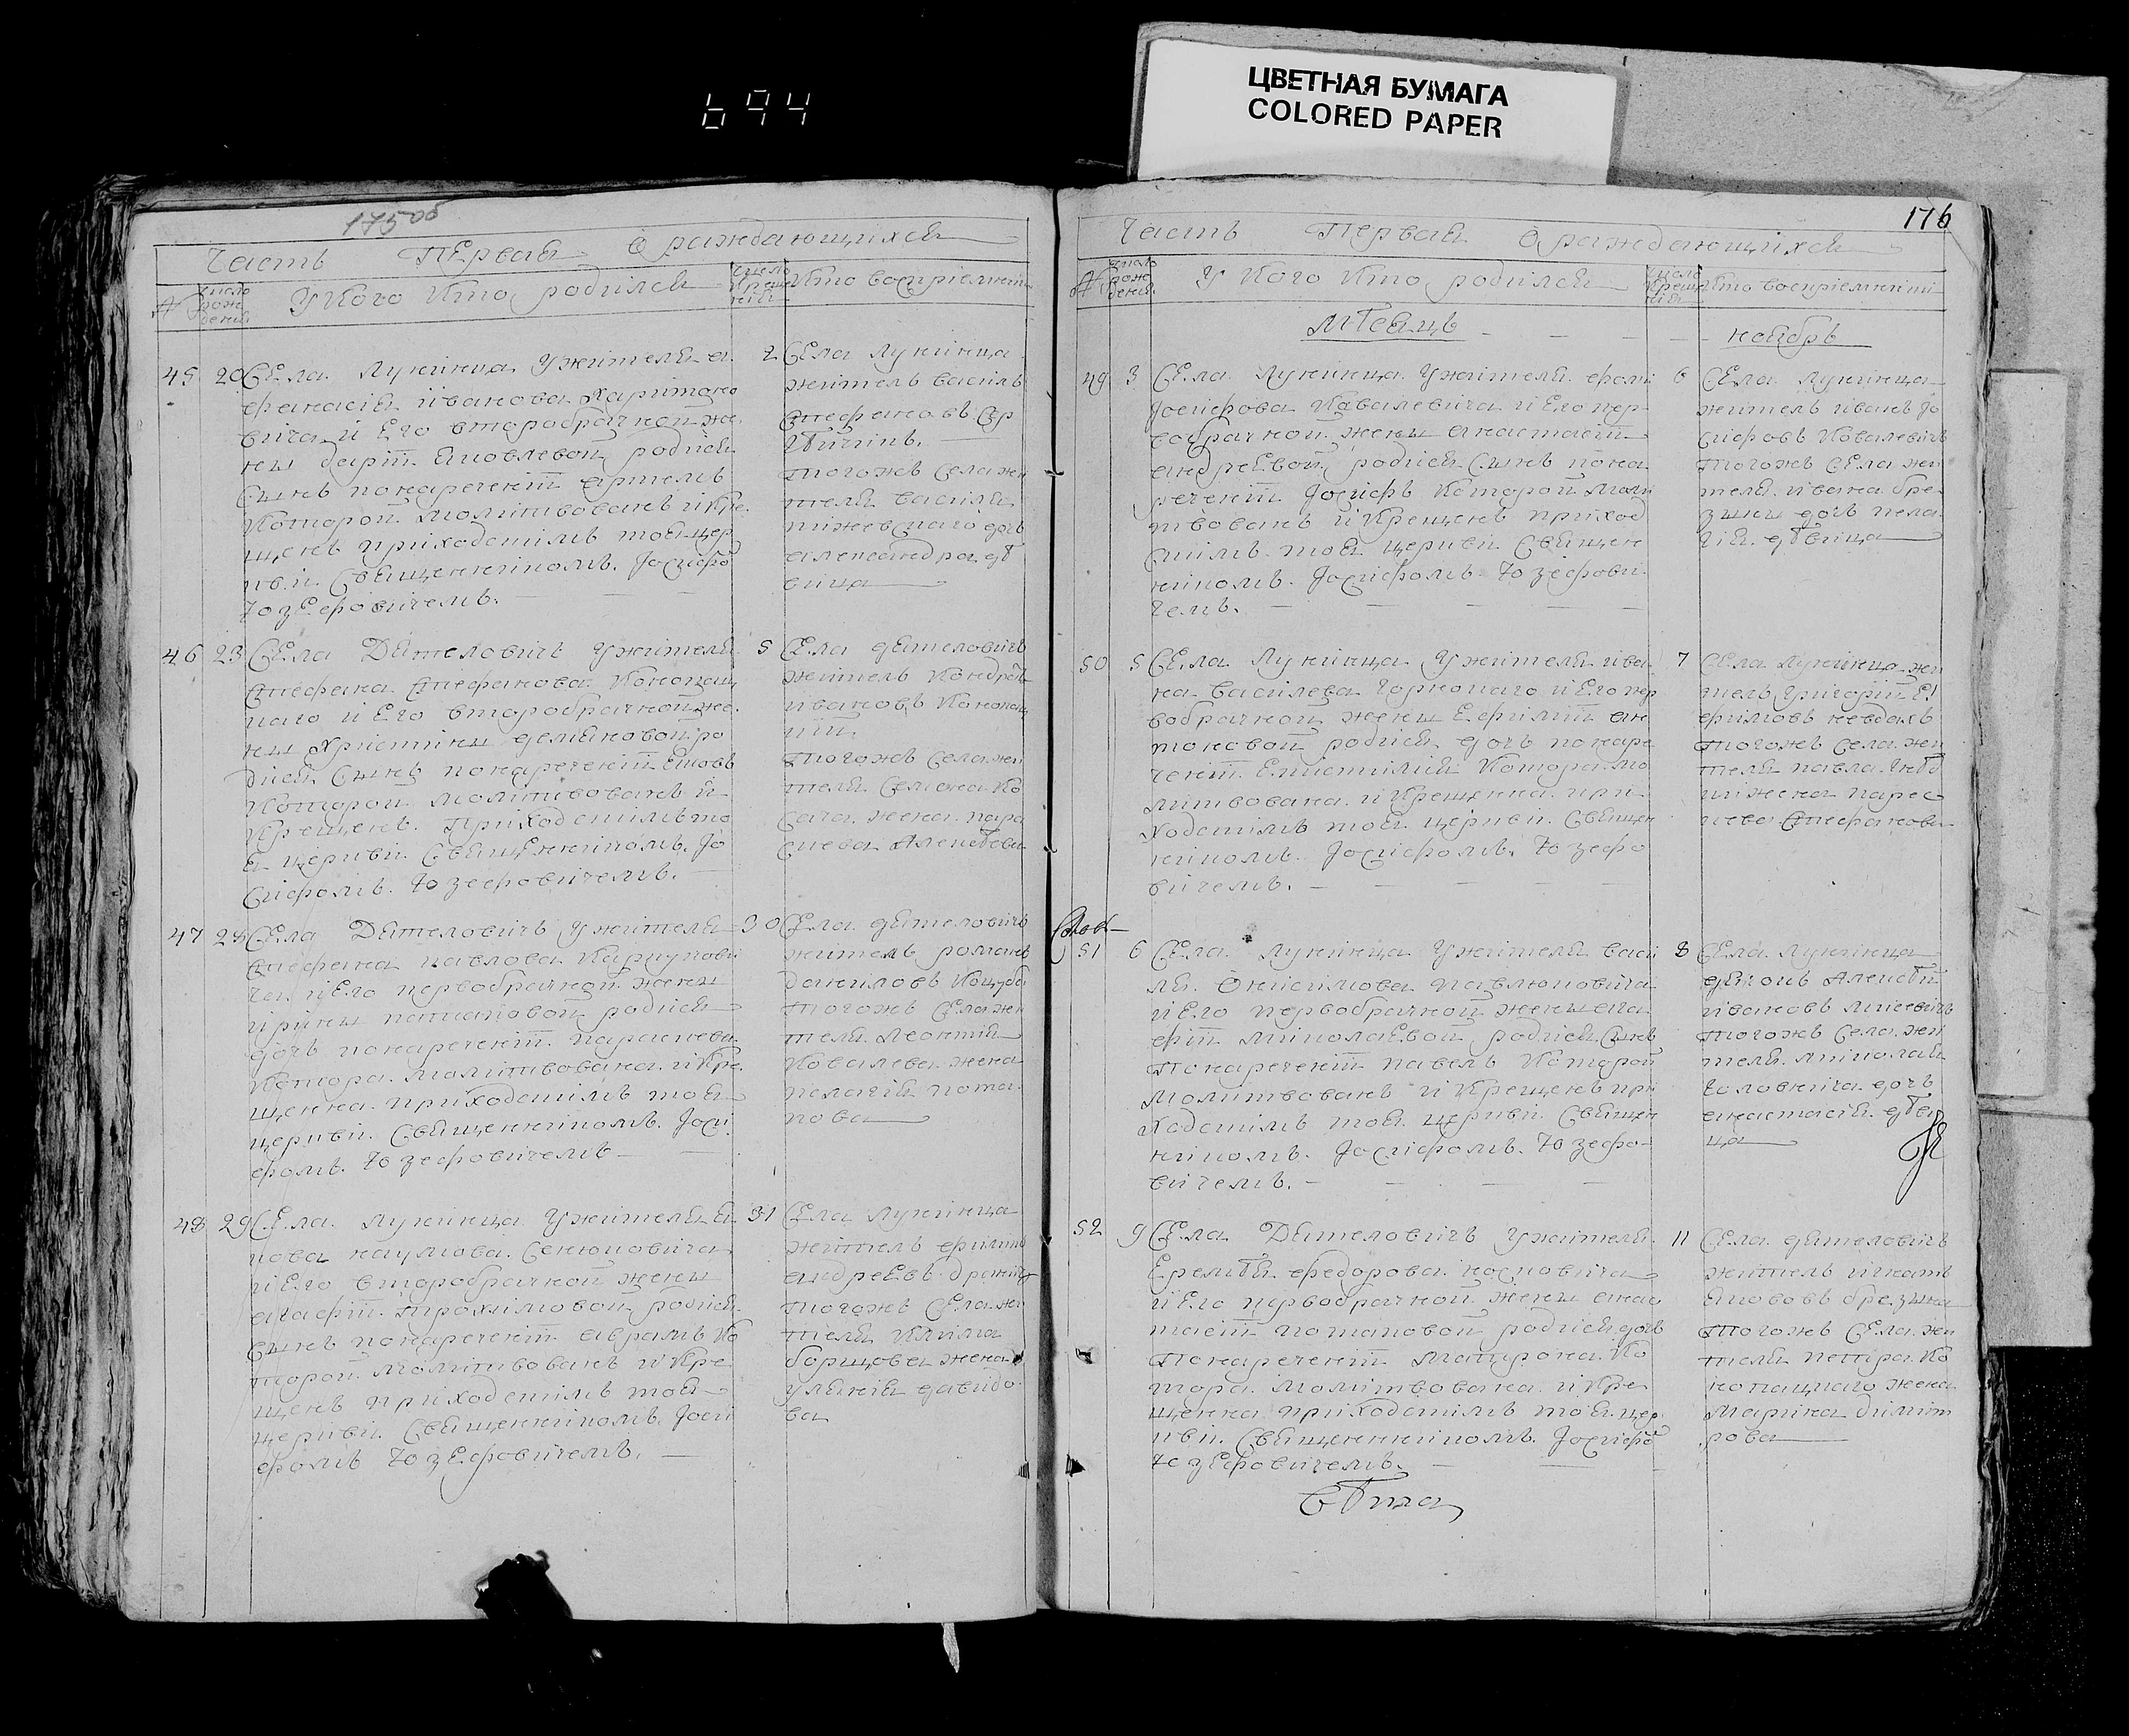 694
ЦВЕТНАЯ БУМАГА
COLORED PAPER
175об
Часть Первая О раждающихся
№
число рождения
У Кого Кто родился
число крещения
Кто восприемники
45 20 Села Лунинца У жителя а
фанасия иванова Харитоно
вича и Его второбрачной же
ны дарïи Яковлевой родися
Сынъ понареченïи артемъ
Которой молитвованъ и Кре
щенъ приходскимъ тоя цер
кви Священникомъ Iосифо
Юзефовичемъ.
2 Села Лунинца
житель василь
Стефановъ
тогожъ Села жи
теля василия
дочь
александра дѣ
вица
46 23 Села Дятеловичъ У жителя
Стефана Стефанова Конопац
каго и Его второбрачной же
ны Христины демяновой ро
дися Сынъ понареченïи Яковъ
Которой молитвованъ и
Крещенъ Приходскимъ то
я церкви Священникомъ Iо
сифомъ Юзефовичемъ.
5 Села дятеловичъ
житель Кондратъ
ивановъ Конопац
кïй.
тогожъ Села жи
теля Семена Ко
жена пара
скева Алексѣева
47 28 Села Дятеловичъ У жителя
Стефана павлова Карпунови
ча и Его первобрачной жены
ирины потаповой родися
дочь понареченïи параскева
Котора молитвована и Кре
щенна приходскимъ тоя
церкви Священникомъ Iоси
фомъ Юзефовичемъ
30 Села дятеловичъ
житель романъ
даниловъ Коцуба
тогожъ Села жи
теля леонтия
Ковалева жена
пелагия пота
пова
48 29 Села Лунинца У жителя Я
кова наумова Сенюковича
и Его второбрачной жены
агафïи Трохимовой родися
Сынъ понареченïи аврамъ Ко
торой молитвованъ и Кре
щенъ приходскимъ тоя
церкви Священникомъ Iоси
фомъ Юзефовичемъ.
31 Села Лунинца
житель филипъ
андреевъ
тогожъ Села жи
теля Клима
борщова жена
улияния давидо
ва
176
Часть Первая О раждающихся
№
число рождения
У Кого Кто родился
число крещения
Кто восприемники
мѣсяцъ
ноябрь
49 3 Села Лунинца У жителя фоми
Iосифова Ковалевича и Его пер
вобрачной жены анастасïи
андреевой родися Сынъ пона
реченïи Iосифъ Которой моли
твованъ и Крещенъ приход
скимъ тоя церкви Священ
никомъ Iосифомъ Юзефови
чемъ.
6 Села Лунинца
житель иванъ Iо
сифовъ Ковалевичъ
тогожъ Села жи
теля ивана бре
зины дочь пела
гия дѣвица
50 5 Села Лунинца У жителя ива
на василева Горкопаго и Его пер
вобрачной жены Ефимïи ан
тоновой родися дочь понаре
ченïи Котора мо
литвована и Крещенна при
ходскимъ тоя церкви Священ
никомъ Iосифомъ Юзефо
вичемъ.
7 Села Лунинца жи
тель григорïй Е
фимовъ невдахъ
тогожъ Села жи
теля павла
жена парас
кева Стефанова
51 6 Села Лунинца У жителя васи
ля Онисимова павлюковича
и Его первобрачной жены ага
фïи миколаевой родися Сынъ
Понареченïи павелъ Которой
Молитвованъ и Крещенъ при
ходскимъ тоя церкви Священ
никомъ Iосифомъ Юзефо
вичемъ.
8 Села Лунинца
дяконъ Алексѣй
ивановъ
тогожъ Села жи
теля миколая
Головнича дочь
анастасия дѣви
ца
52 9 Села Дятеловичъ У жителя
Еремѣя федорова
и Его первобрачной жены анас
тасïи потаповой родися дочь
Понареченïи Матрона Ко
тора молитвована и Кре
щенна приходскимъ тоя цер
кви Священникомъ Iосифо
Юзефовичемъ.
11 Села дятеловичъ
житель игнатъ
Яковъ брезина
тогожъ Села жи
теля петра Ко
нопацкаго жена
Марина димит
рова